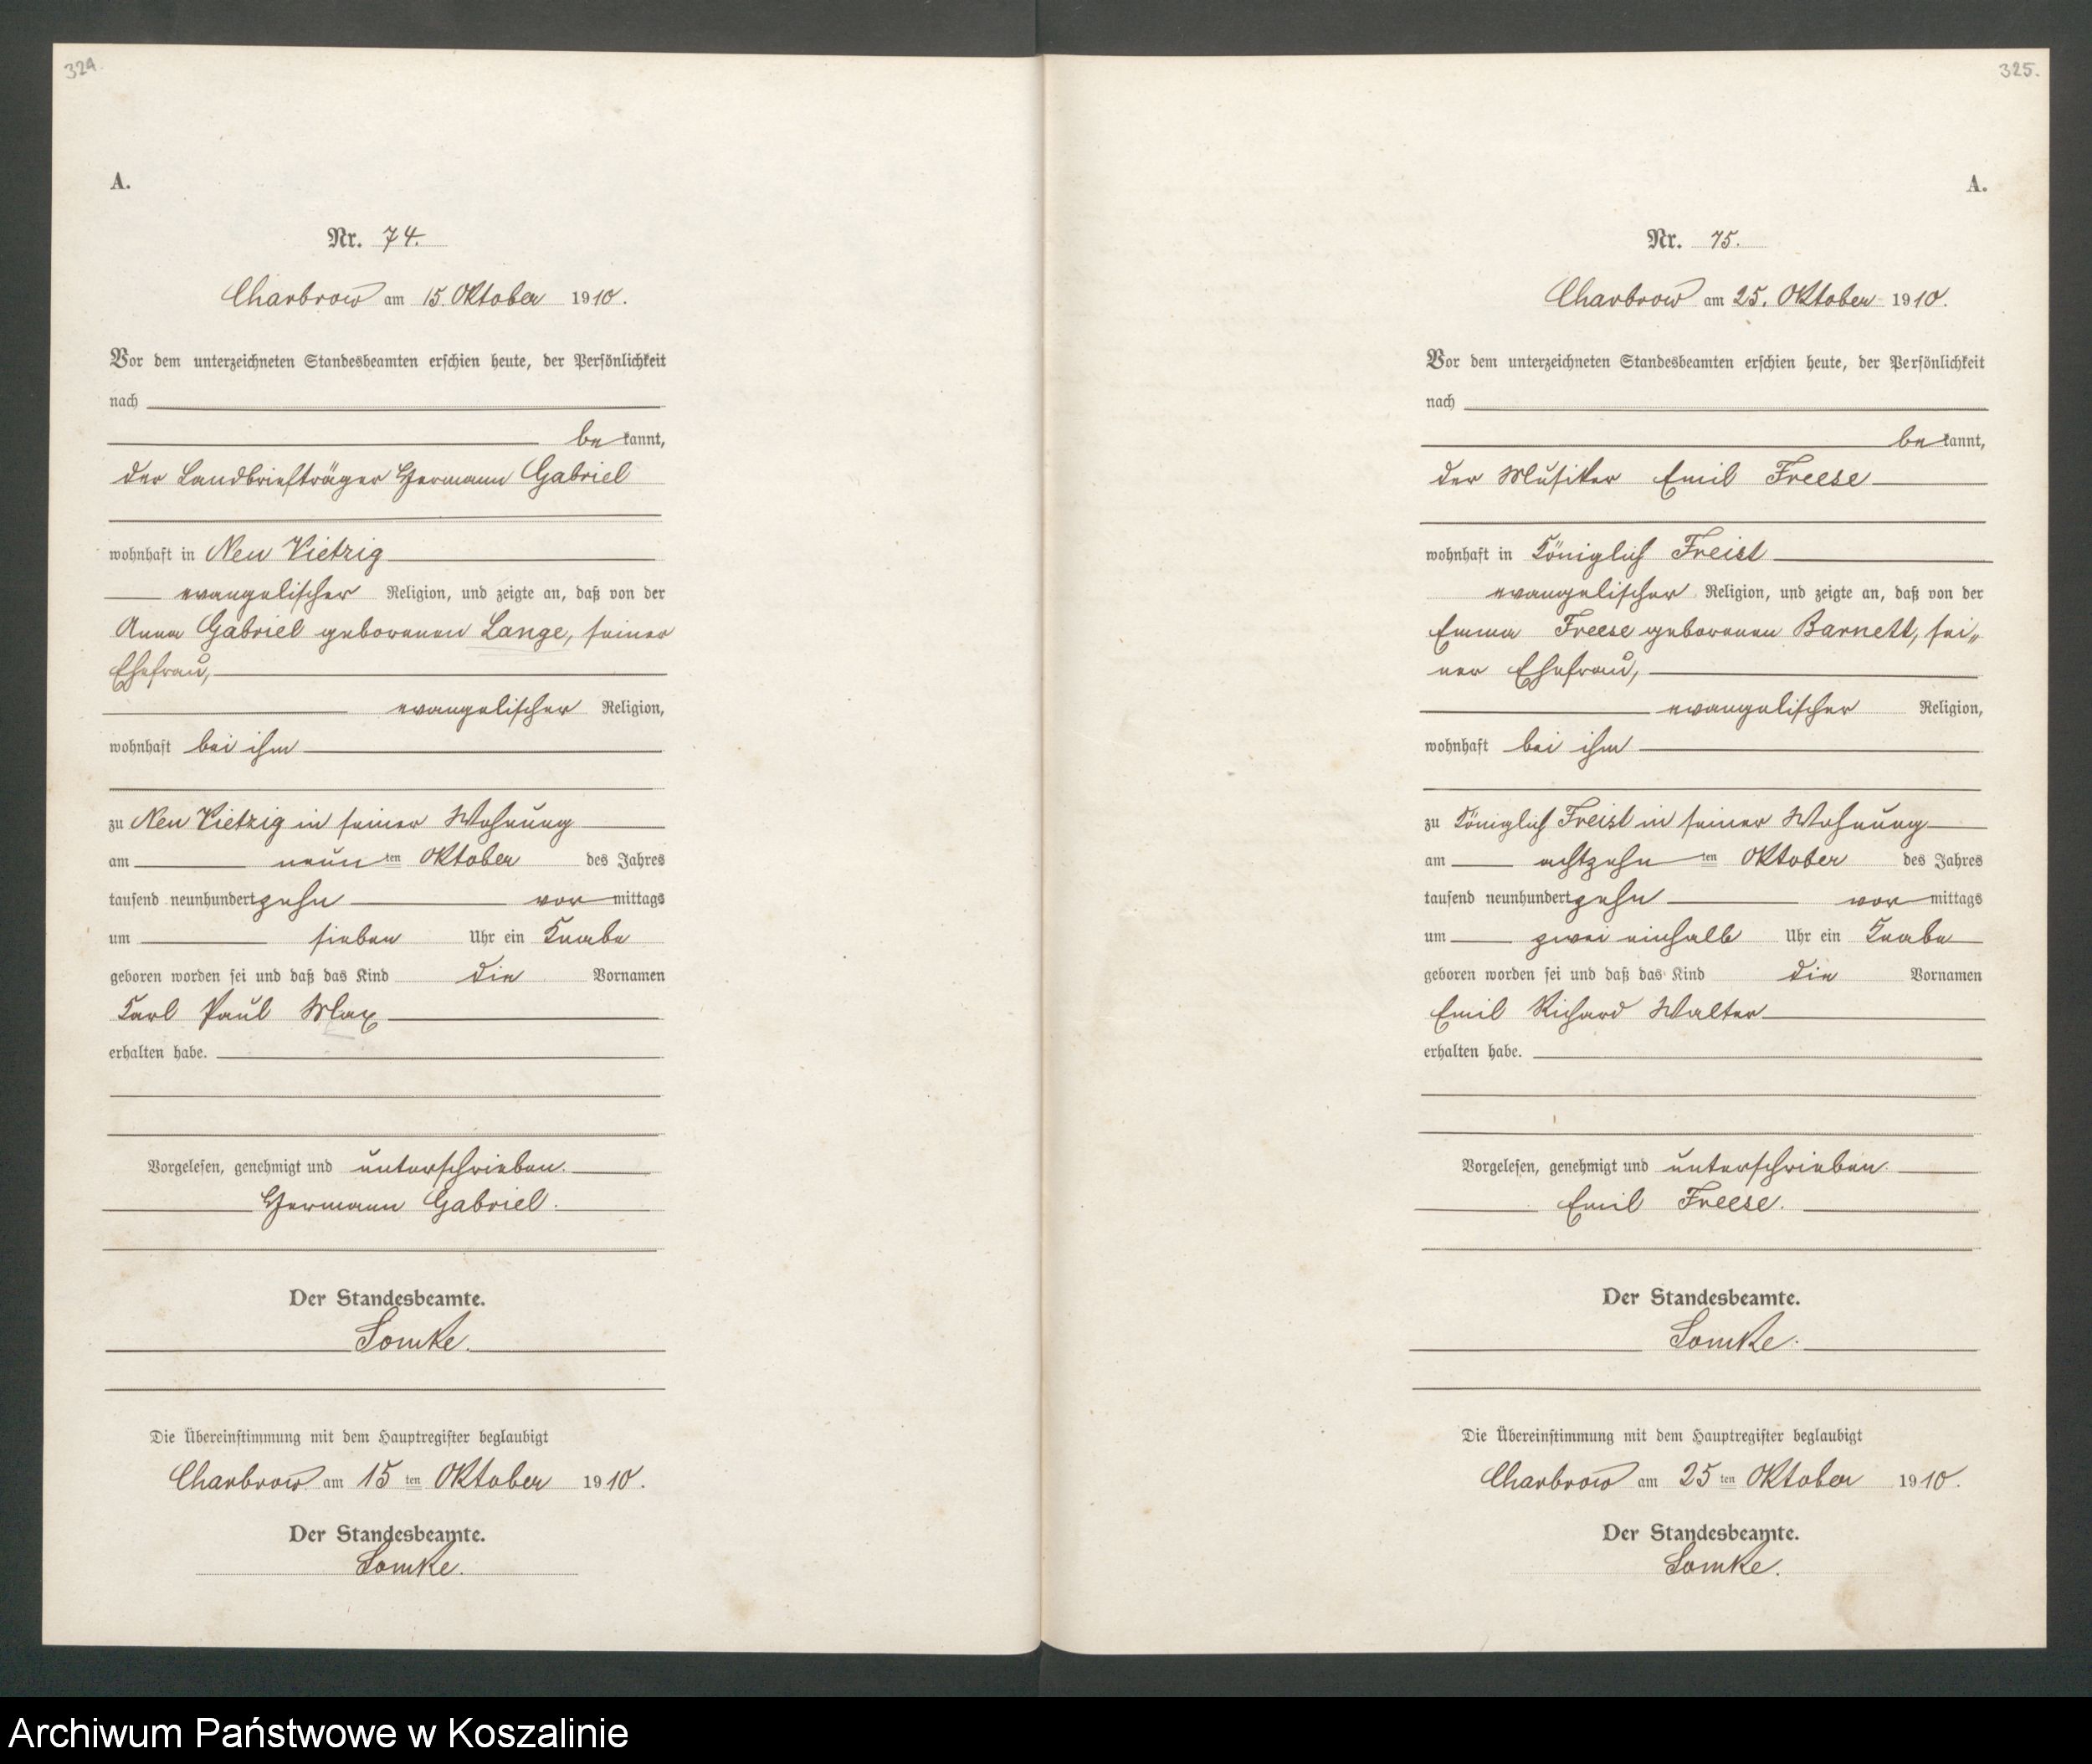 324.
A.
Nr. 74.
Charbrow am 15. Oktober 1910.
Vor dem unterzeichneten Standesbeamten erschien heute, der Persönlichkeit
nach
be kannt,
der Landbriefträger Hermann Gabriel
wohnhaft in Neu Vietzig
evangelischer Religion, und zeigte an, daß von der
Anna Gabriel geborenen Lange, seiner
Ehefrau,
evangelischer Religion,
wohnhaft bei ihm
zu Neu Vietzig in seiner Wohnung
am neun ten Oktober des Jahres
tausend neunhundert zehn vor mittags
um sieben Uhr ein Knabe
geboren worden sei und daß das Kind die Vornamen
Karl Paul Max
erhalten habe.
Vorgelesen, genehmigt und unterschrieben.
Hermann Gabriel.
Der Standesbeamte.
Lomke.
Die Übereinstimmung mit dem Hauptregister beglaubigt
Charbrow am 15 ten Oktober 1910.
Der Standesbeamte.
Lomke.
325.
A.
Nr. 75.
Charbrow am 25. Oktober 1910.
Vor dem unterzeichneten Standesbeamten erschien heute, der Persönlichkeit
nach
be kannt,
der Musiker Emil Freese
wohnhaft in Königlich Freist
evangelischer Religion, und zeigte an, daß von der
Emma Freese geborenen Barnett, sei„
ner Ehefrau,
evangelischer Religion,
wohnhaft bei ihm
zu Königlich Freist in seiner Wohnung
am achtzehn ten Oktober des Jahres
tausend neunhundert zehn vor mittags
um zwei einhalb Uhr ein Knabe
geboren worden sei und daß das Kind die Vornamen
Emil Richard Walter
erhalten habe.
Vorgelesen, genehmigt und unterschrieben.
Emil Freese.
Der Standesbeamte.
Lomke.
Die Übereinstimmung mit dem Hauptregister beglaubigt
Charbrow am 25 ten Oktober 1910.
Der Standesbeamte.
Lomke.
Archiwum Państwowe w Koszalinie